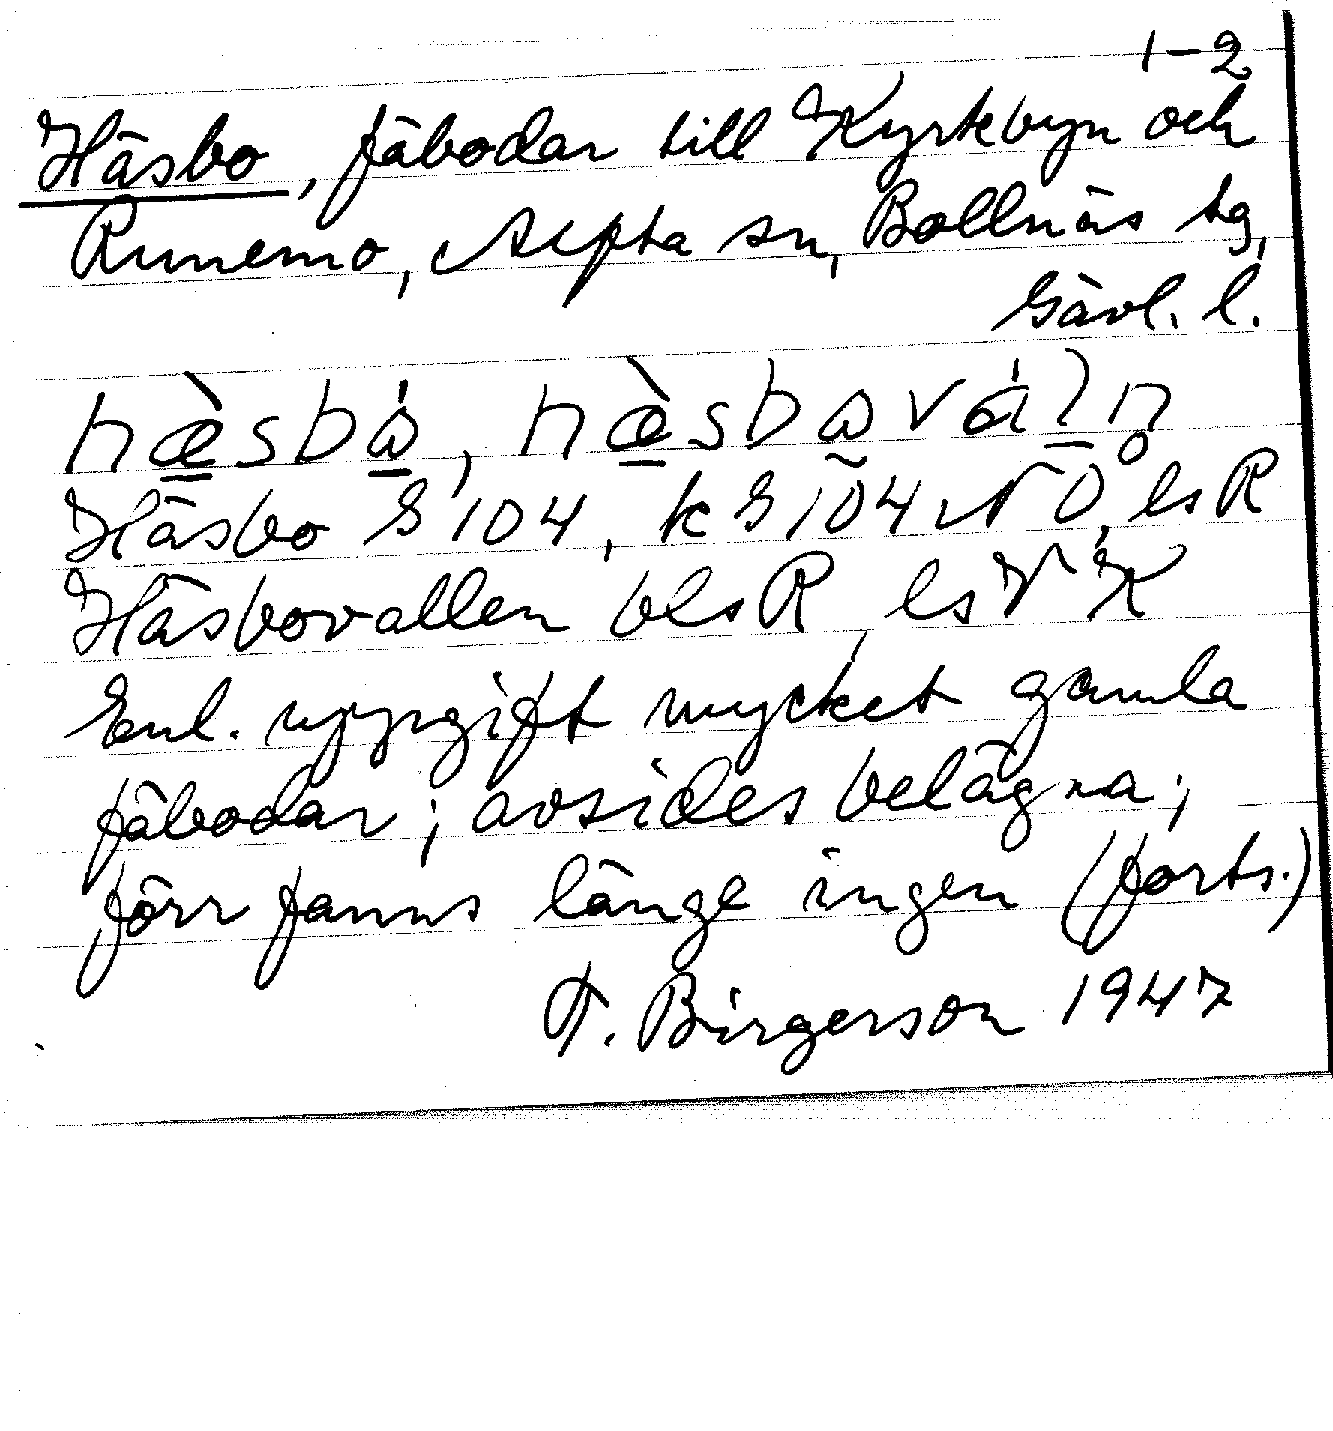 1-2
Häsbo, fäbodar till Kyrkbyn och
Runemo, Alfta sn, Bollnäs tg,
Gävl. l.
hæ̀sbǻ, hæ̀sbavál̄n̥
Häsbo G 104, k G 104 NO, ls R
Häsbovallen bls R, ls V K
Enl. uppgift mycket gamla
fäbodar; avsides belägna;
förr fanns länge ingen (forts.)
F. Birgerson 1947